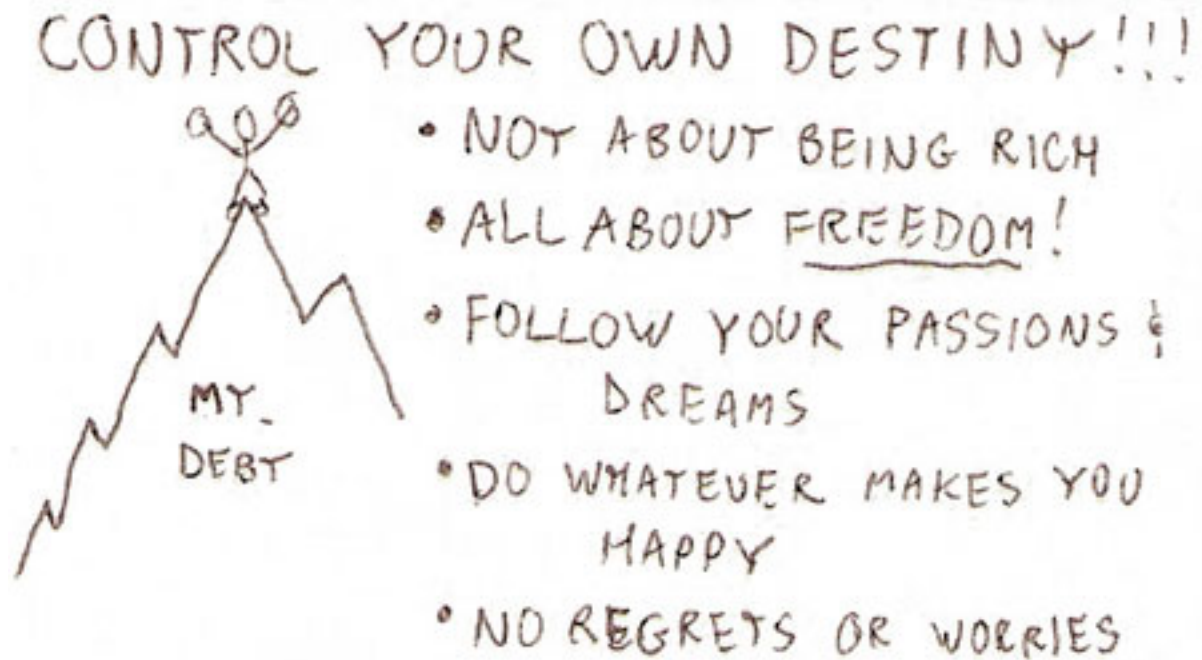 CONTROL YOUR OWN DESTINY!!!
• NOT ABOUT BEING RICH
• ALL ABOUT FREEDOM!
• FOLLOW YOUR PASSIONS &
DREAMS
MY
DEBT
• DO WHATEVER MAKES YOU
HAPPY
• NO REGRETS OR WORRIES